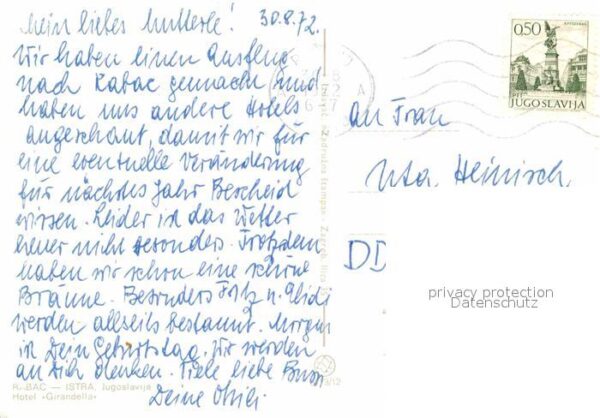 Mein liebes Mutterle! 30.8.72.
Wir haben einen Ausflug
nach Rabac gemacht und
haben uns andere Hotels
angeschaut, damit wir für
eine eventuelle Veränderung
für nächstes Jahr Bescheid
wissen. Leider ist das Wetter
heuer nicht besonders. Trotzdem
haben wir schon eine schöne
Bräune. Besonders Fritz u.
werden allseits bestaunt. Morgen
ist Dein Geburtstag. Wir werden
an Dich denken. Viele liebe Bussi
Deine
RABAC — ISTRA, Jugoslavija
Hotel »Girandella«
0,50
JUGOSLAVIJA
An Frau
Uta. Heinisch.
DD
privacy protection
Datenschutz